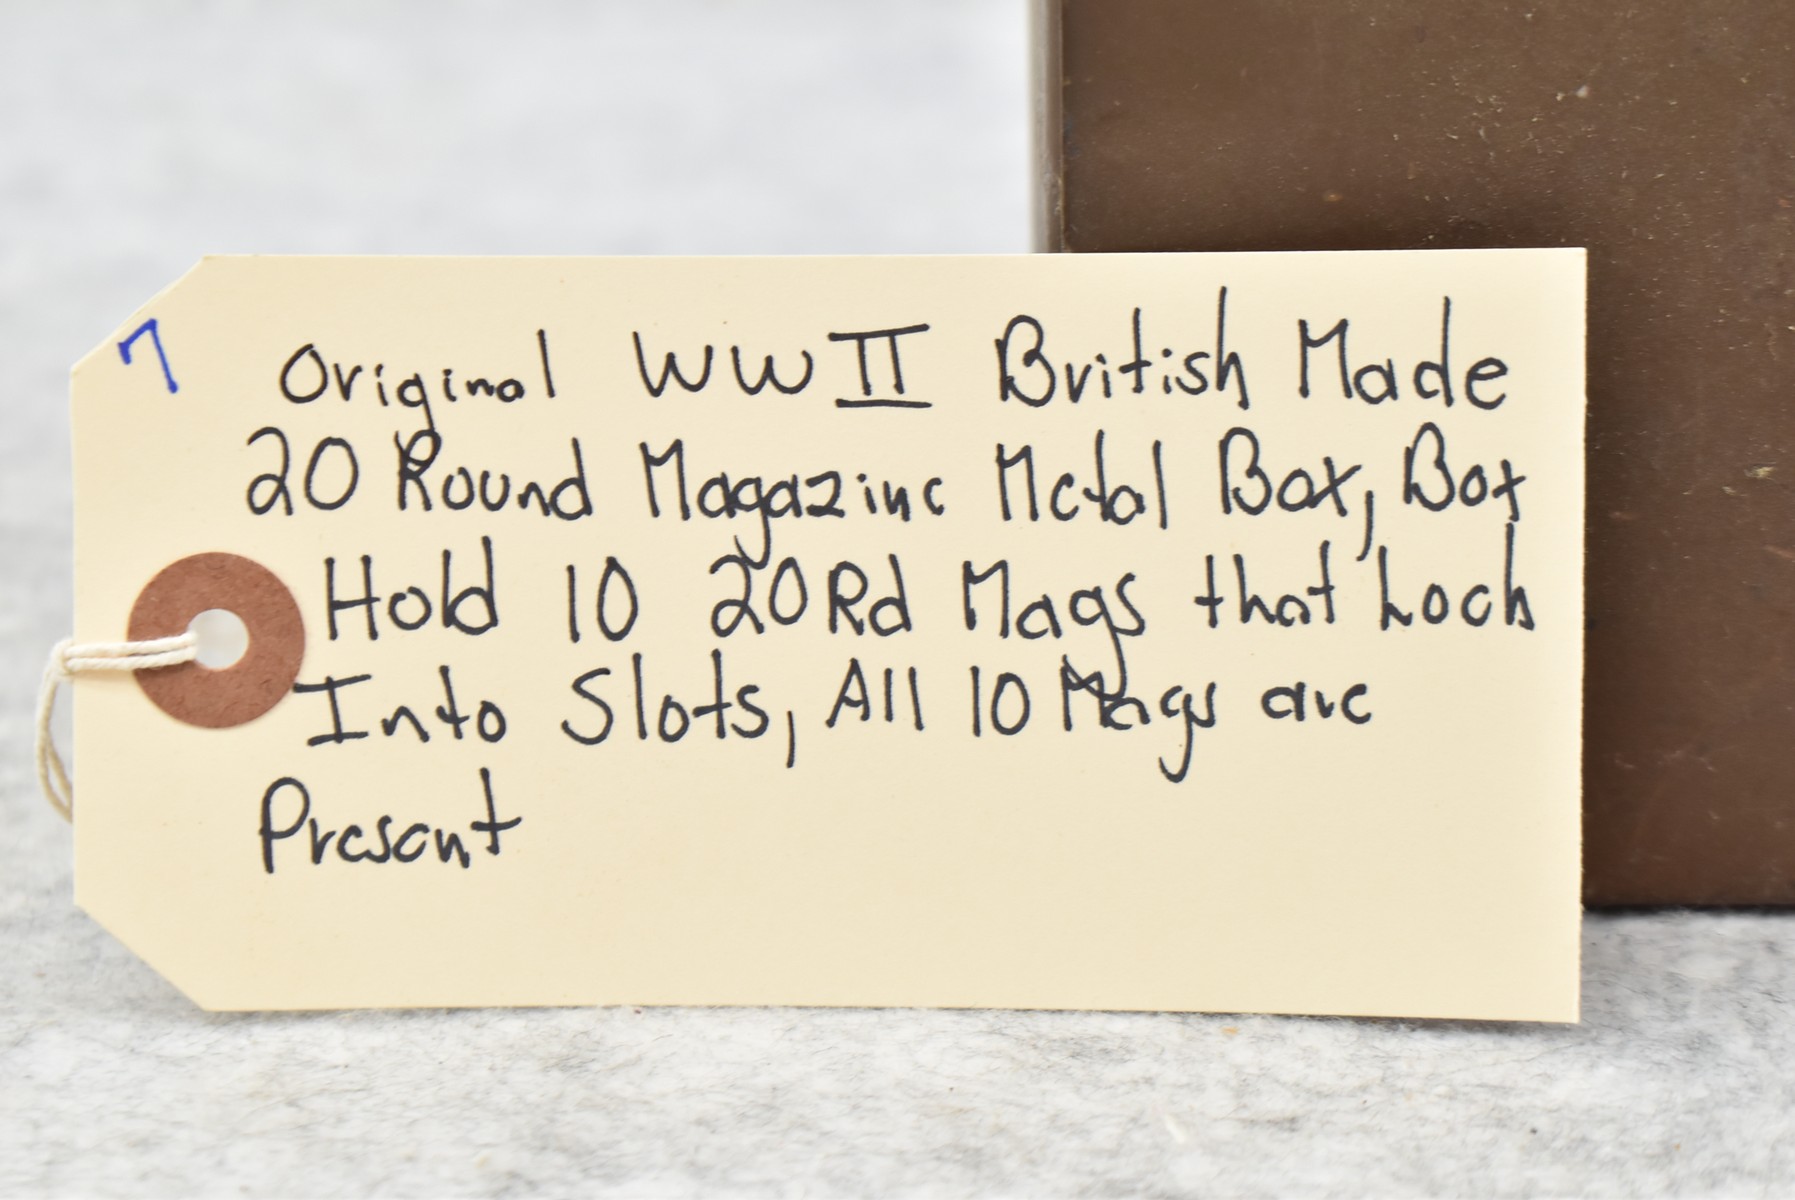 7
Original WWII British Made
20 Round Magazine Metal Box, Box
Hold 10 20Rd Mags that Lock
Into Slots, All 10 Mags are
Present